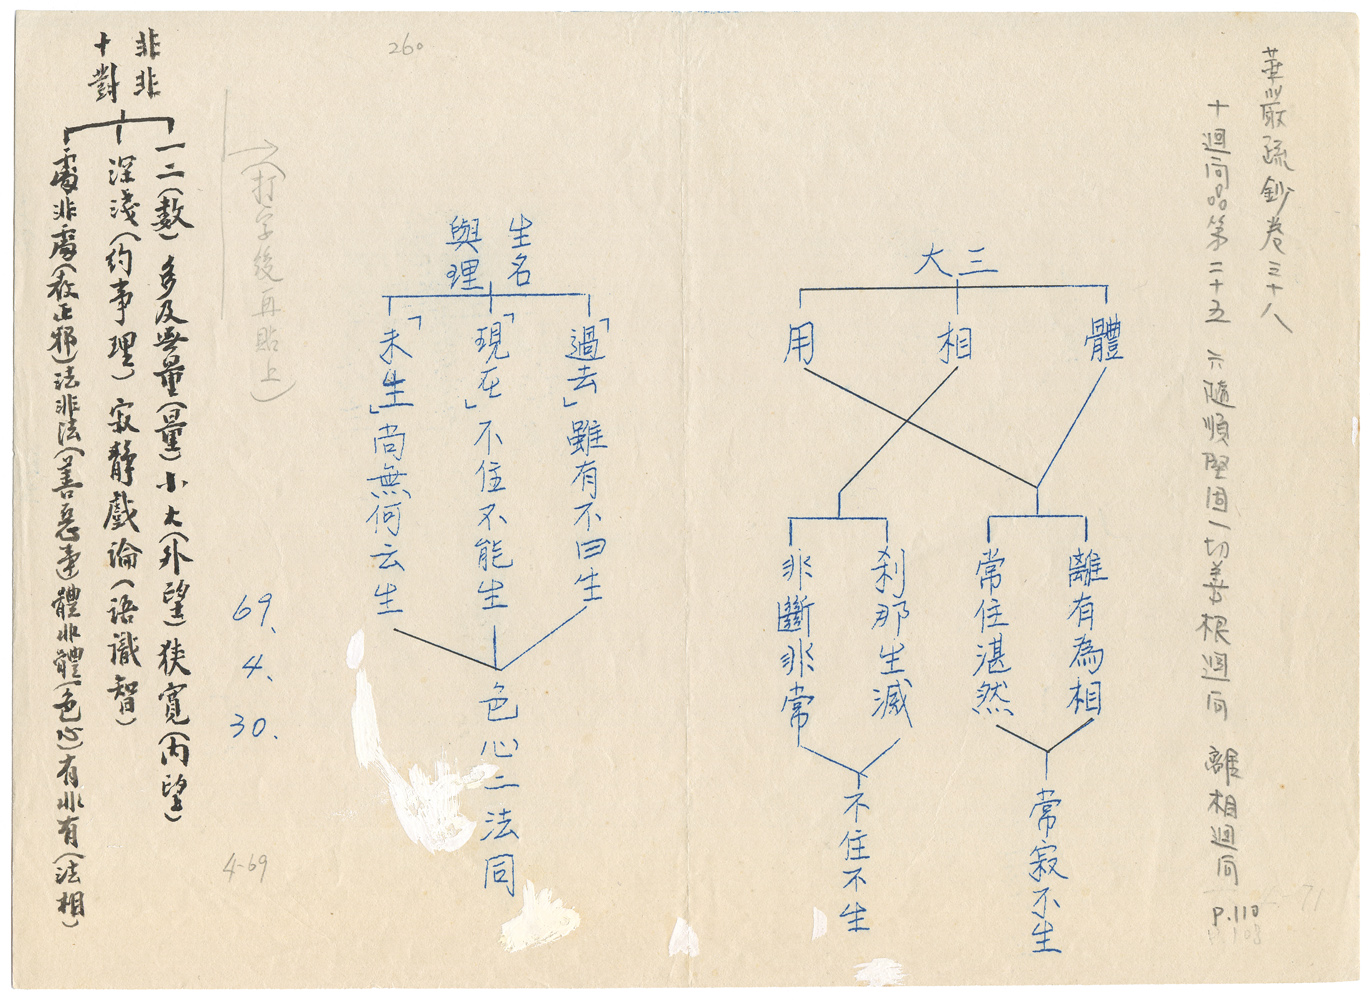 華嚴疏鈔卷三十八
十迴向品第二十五 六隨順堅固一切善根迴向 離相迴向 P.110
三大
體
相
用
離有為相
常住湛然
剎那生滅
非斷非常
常寂不生
不住不生
生名與理
「過去」雖有不曰生
「現在」不住不能生
「未生」尚無何云生
色心二法同
260
(打字後再貼上)
69.
4.
30.
4-69
非非十對
一二(數)多及無量(量)小大(外望)狹寬(內望)
深淺(約事理)寂靜戲論(語識智)
處非處(在正邪)法非法(善惡違體非體(色心)有非有(法相)